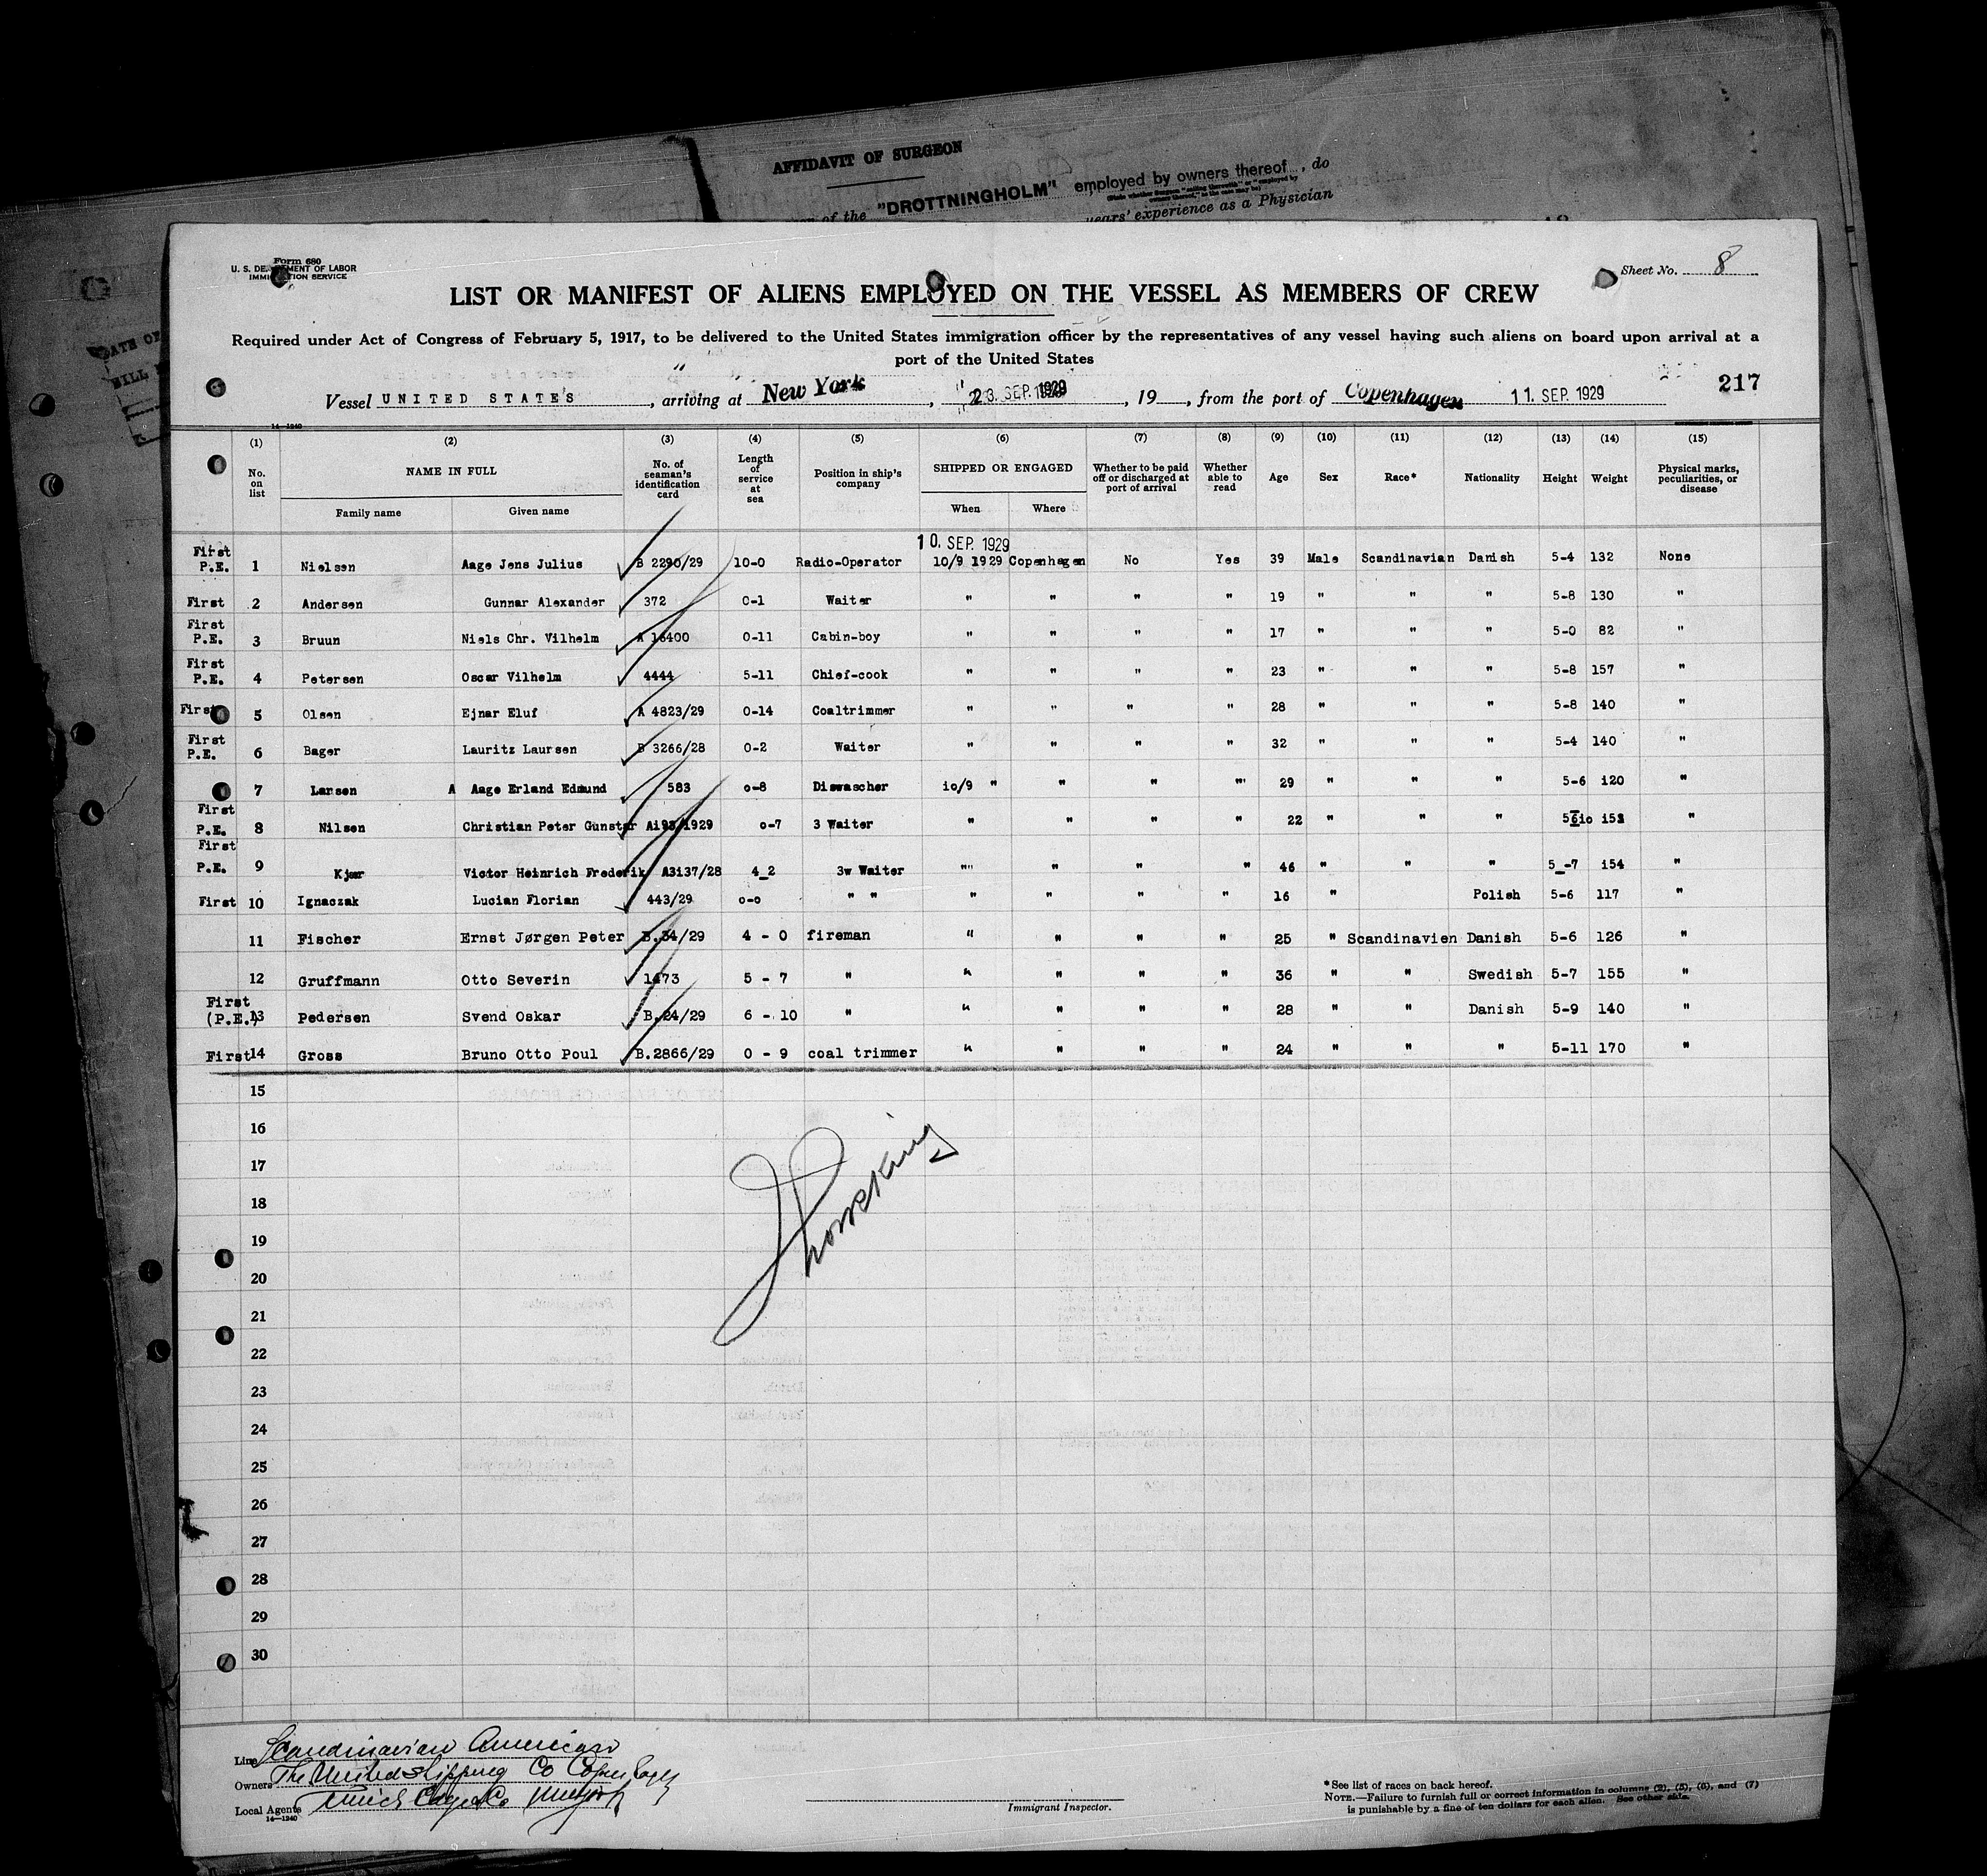 AFFIDAVIT OF SURGEON
of the "DROTTNINGHOLM" employed by owners thereof, do
years' experience as a Physician
Form 680
U. S. DE MENT OF LABOR
IMMI TION SERVICE
Sheet No. 8
LIST OR MANIFEST OF ALIENS EMPLOYED ON THE VESSEL AS MEMBERS OF CREW
Required under Act of Congress of February 5, 1917, to be delivered to the United States immigration officer by the representatives of any vessel having such aliens on board upon arrival at a
port of the United States
Vessel UNITED STATES, arriving at New York, 23. SEP. 1929, 19, from the port of Copenhagen 11. SEP. 1929 217
14—1240
(1) (2) (3) (4) (5) (6) (7) (8) (9) (10) (11) (12) (13) (14) (15)
No. on list NAME IN FULL Family name Given name No. of seaman's identification card Length of service at sea Position in ship's company SHIPPED OR ENGAGED When Where Whether to be paid off or discharged at port of arrival Whether able to read Age Sex Race* Nationality Height Weight Physical marks, peculiarities, or disease
10. SEP. 1929
First P.E. 1 Nielsen Aage Jens Julius B 2290/29 10-0 Radio-Operator 10/9 1929 Copenhagen No Yes 39 Male Scandinavian Danish 5-4 132 None
First 2 Andersen Gunnar Alexander 372 0-1 Waiter " " " " 19 " " " 5-8 130 "
First P.E. 3 Bruun Niels Chr. Vilhelm A 16400 0-11 Cabin-boy " " " " 17 " " " 5-0 82 "
First P.E. 4 Petersen Oscar Vilhelm 4444 5-11 Chief-cook " " " " 23 " " " 5-8 157 "
First 5 Olsen Ejnar Eluf A 4823/29 0-14 Coaltrimmer " " " " 28 " " " 5-8 140 "
First P.E. 6 Bager Lauritz Laursen B 3266/28 0-2 Waiter " " " " 32 " " " 5-4 140 "
7 Larsen A Aage Erland Edmund 583 o-8 Diswascher io/9 " " " " 29 " " " 5-6 i20 "
First P.E. 8 Nilsen Christian Peter Gunstar Ai93/1929 o-7 3 Waiter " " " " 22 " " "
First P.E. 9 Kjær Victor Heinrich Frederik A3i37/28 4_2 3w Waiter " " " " 46 " " " 5_-7 i54 "
First 10 Ignaczak Lucian Florian 443/29 o-o " " " " " " 16 " Polish 5-6 117 "
11 Fischer Ernst Jørgen Peter B.34/29 4 - 0 fireman " " " " 25 " Scandinavien Danish 5-6 126 "
12 Gruffmann Otto Severin 1473 5 - 7 " " " " " 36 " " Swedish 5-7 155 "
First (P.E.) 13 Pedersen Svend Oskar B.24/29 6 - 10 " " " " " 28 " " Danish 5-9 140 "
First 14 Gross Bruno Otto Poul B.2866/29 0 - 9 coal trimmer " " " " 24 " " " 5-11 170 "
15
16
17
18
19
20
21
22
23
24
25
26
27
28
29
30
Line Scandinavian American
Owners The United Shipping Co Copenhagen
Local Agents
14—1240
Immigrant Inspector.
*See list of races on back hereof.
NOTE.—Failure to furnish full or correct information in columns (2), (5), (6), and (7)
is punishable by a fine of ten dollars for each alien. See other side.